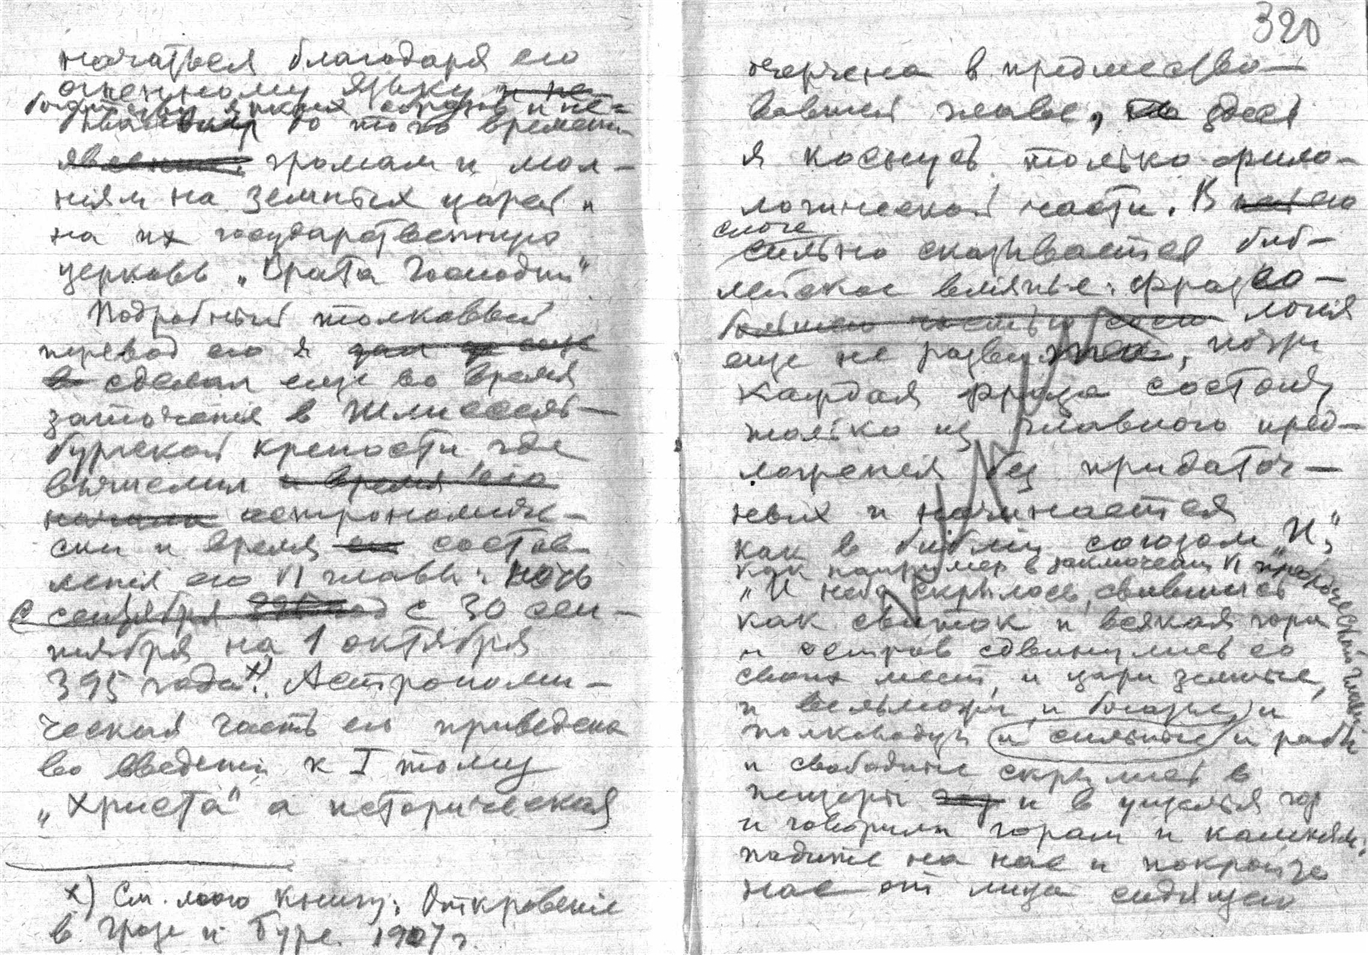 начаться благодаря его
огненному языку и не
богатству ярких образов и не-
по тому времени
явлению громам и мол-
ниям на земных царей и
на их государственную
церковь „Врата Господни“
Подробный толковый
перевод его я дал уже еще
в сделал еще во время
заточения в Шлиссель-
бургской крепости где
вычислил и время его
начала астрономиче-
ски и время его состав-
ления его VI главы: ночь
с сентября с 30 сен-
тября на 1 октября
395 года х). Астрономи-
ческая часть его приведена
во введении к I тому
„Христа“ а историческая
х) См. мою книгу: Откровение
в Грозе и Буре 1907 г.
320
очерчена в предшество-
вавшей главе, но здесь
я коснусь только фило-
логической части. В его
слоге
сильно сказывается биб-
лейское влияние: фразео-
большею частью логия
еще не развита, почти
каждая фраза состоит
только из главного пред-
ложения без придаточ-
ных и начинается
как в библии союзом „И“,
как например в заключении VI пророческой главы
„И небо скрылось, свившись
как свиток и всякая гора
и остров сдвинулись со
своих мест, и цари земные,
и вельможи и богатые и
полководцы и сильные и рабы
и свободные скрылись в
пещеры гор и в ущелья гор
и говорили горам и камням:
падите на нас и покройте
нас от лица сидящего